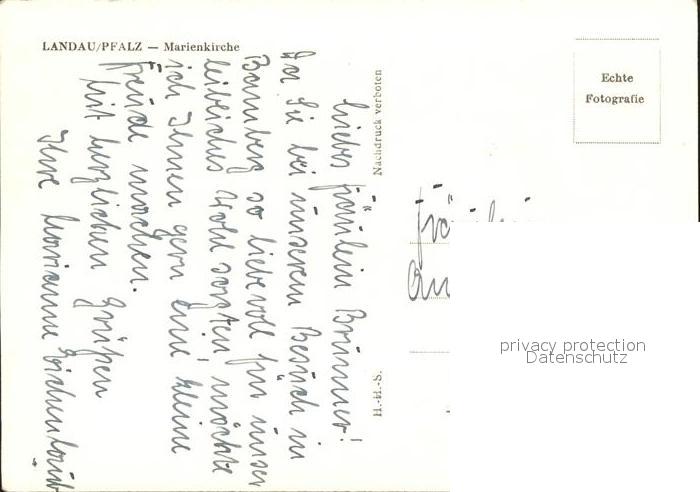 LANDAU/PFALZ — Marienkirche
Liebes Fräulein Brünner!
Da Sie bei unserem Besuch in
Bamberg so liebevoll für unser
leibliches Wohl sorgten, möchte
ich Ihnen gern eine kleine
Freude machen.
Mit herzlichen Grüßen
Ihre Marianne Eichenlaub
Nachdruck verboten
H.-H.-S.
Echte
Fotografie
privacy protection
Datenschutz